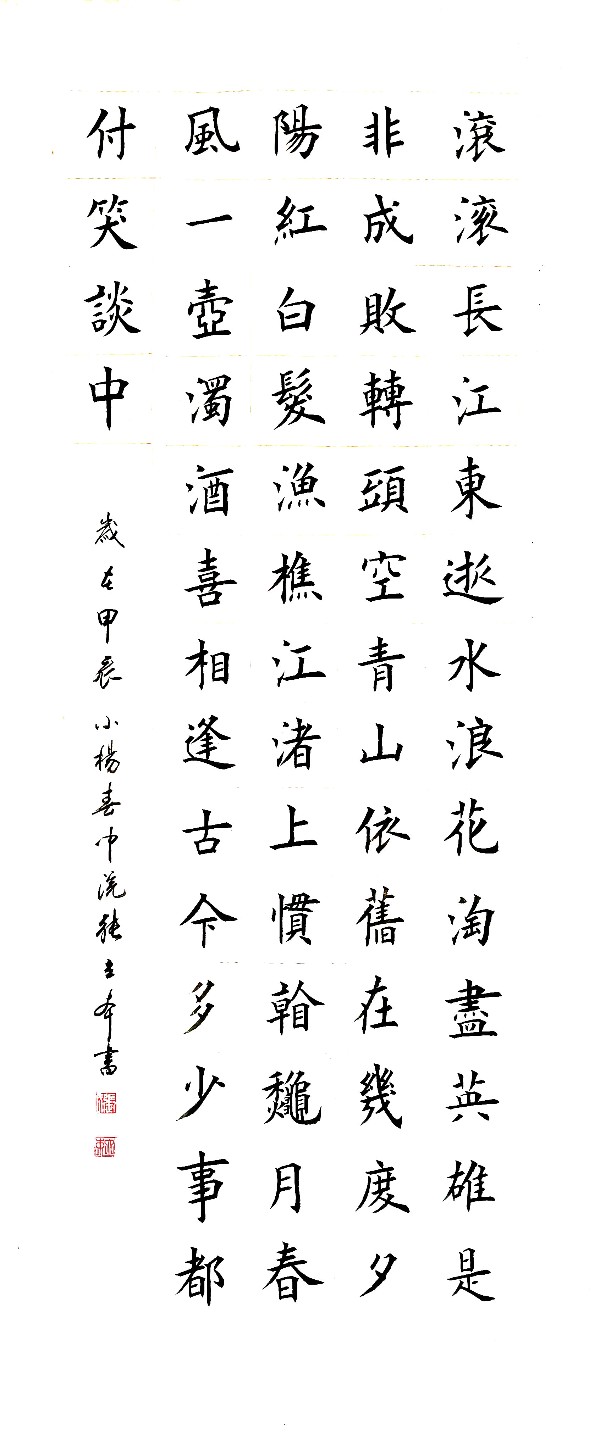 滾滾長江東逝水浪花淘盡英雄是
非成敗轉頭空青山依舊在幾度夕
陽紅白髮漁樵江渚上慣看秋月春
風一壺濁酒喜相逢古今多少事都
付笑談中
歲在甲辰小楊春中浣張立本書